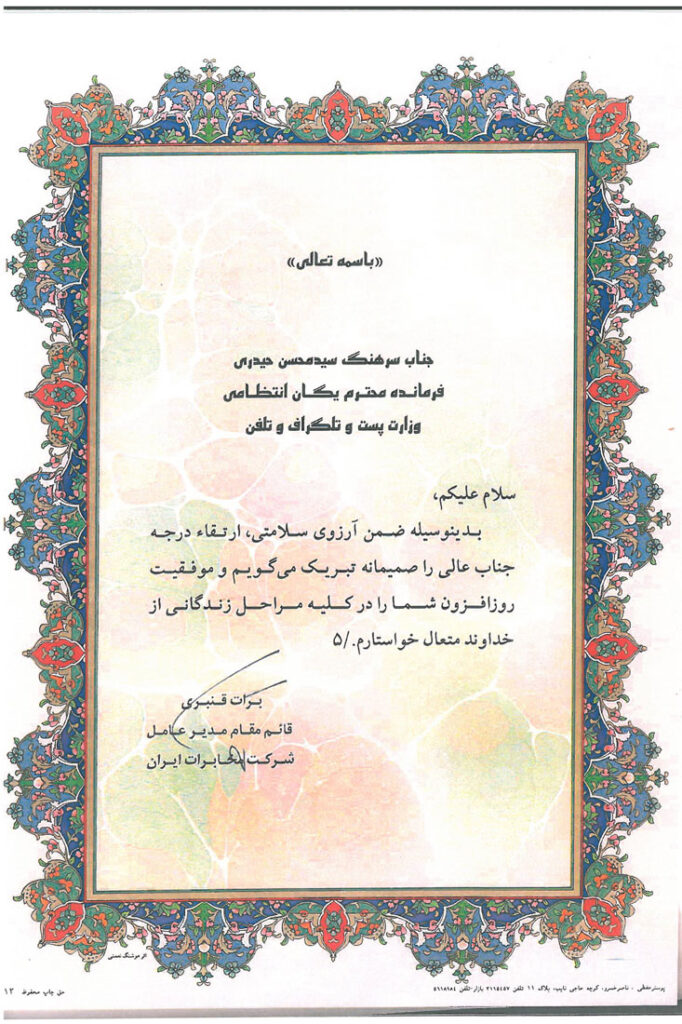 «باسمه تعالی»
جناب سرهنگ سیدمحسن حیدری
فرمانده محترم یگان انتظامی
وزارت پست و تلگراف و تلفن
سلام علیکم،
بدینوسیله ضمن آرزوی سلامتی، ارتقاء درجه
جناب عالی را صمیمانه تبریک می‌گویم و موفقیت
روزافزون شما را در کلیه مراحل زندگانی از
خداوند متعال خواستارم./۵
برات قنبری
قائم مقام مدیر عامل
شرکت مخابرات ایران
اثر هوشنگ نعمتی
حق چاپ محفوظ ۱۲
پوستر معطی - ناصرخسرو، کوچه حاجی نایب، پلاک ۱۱ تلفن ۳۱۱۵۴۵۷ بازار-تلفن ۵۶۱۸۹۸۴